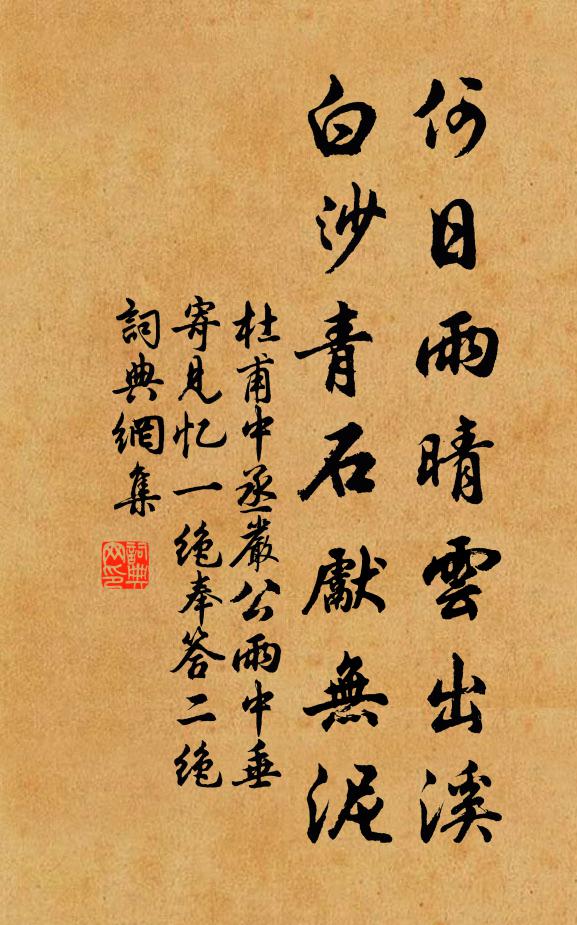 何日雨晴雲出溪
白沙青石獻無泥
杜甫中丞嚴公雨中垂
寄見忆一絶奉答二絶
詞典網集
詞典
网印